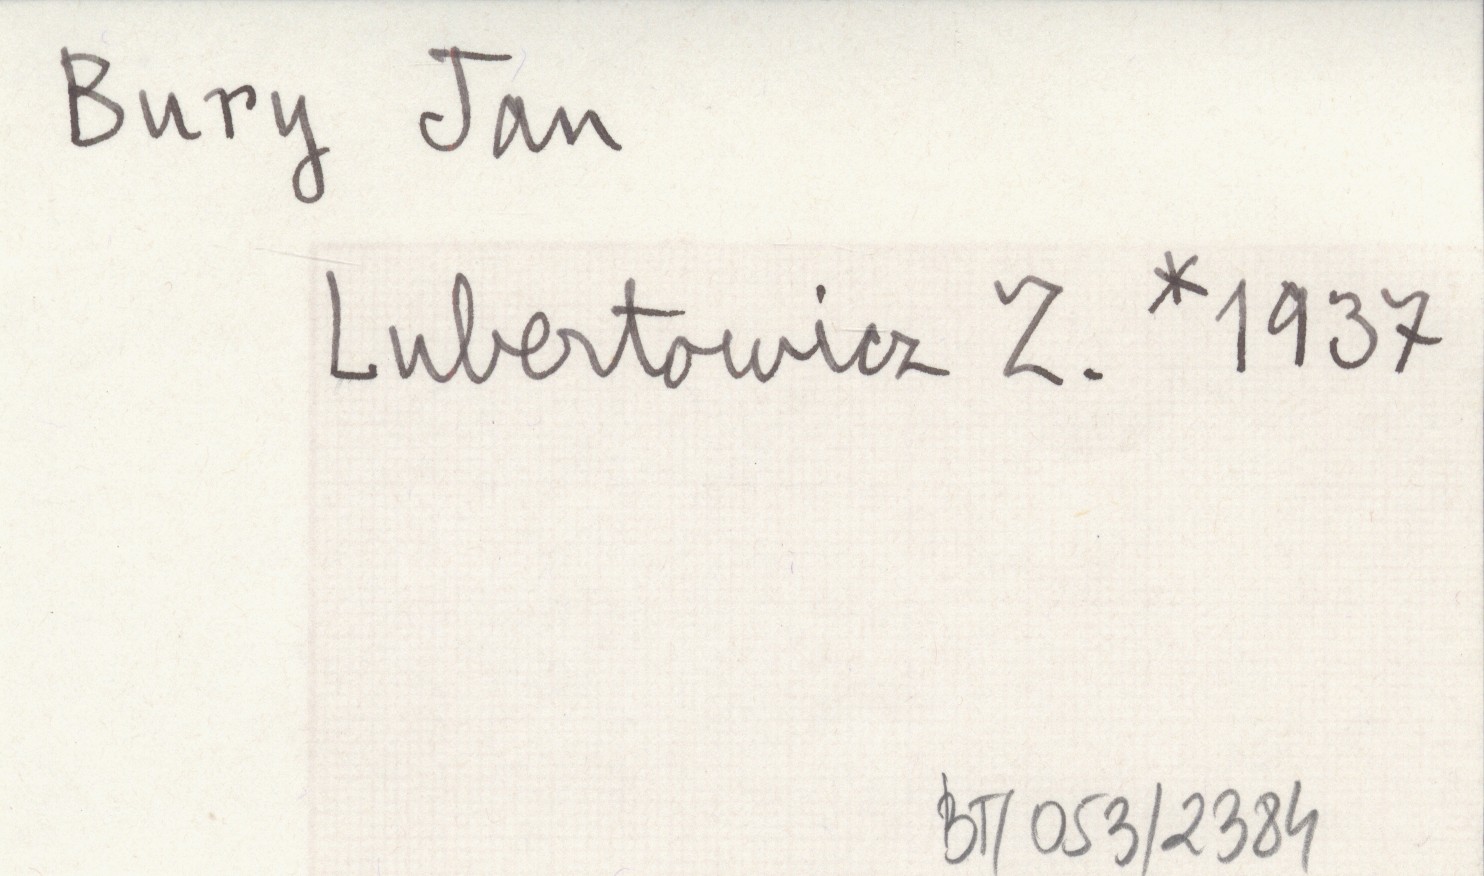 Bury Jan
Lubertowicz Z. *1937
BT/053/2384